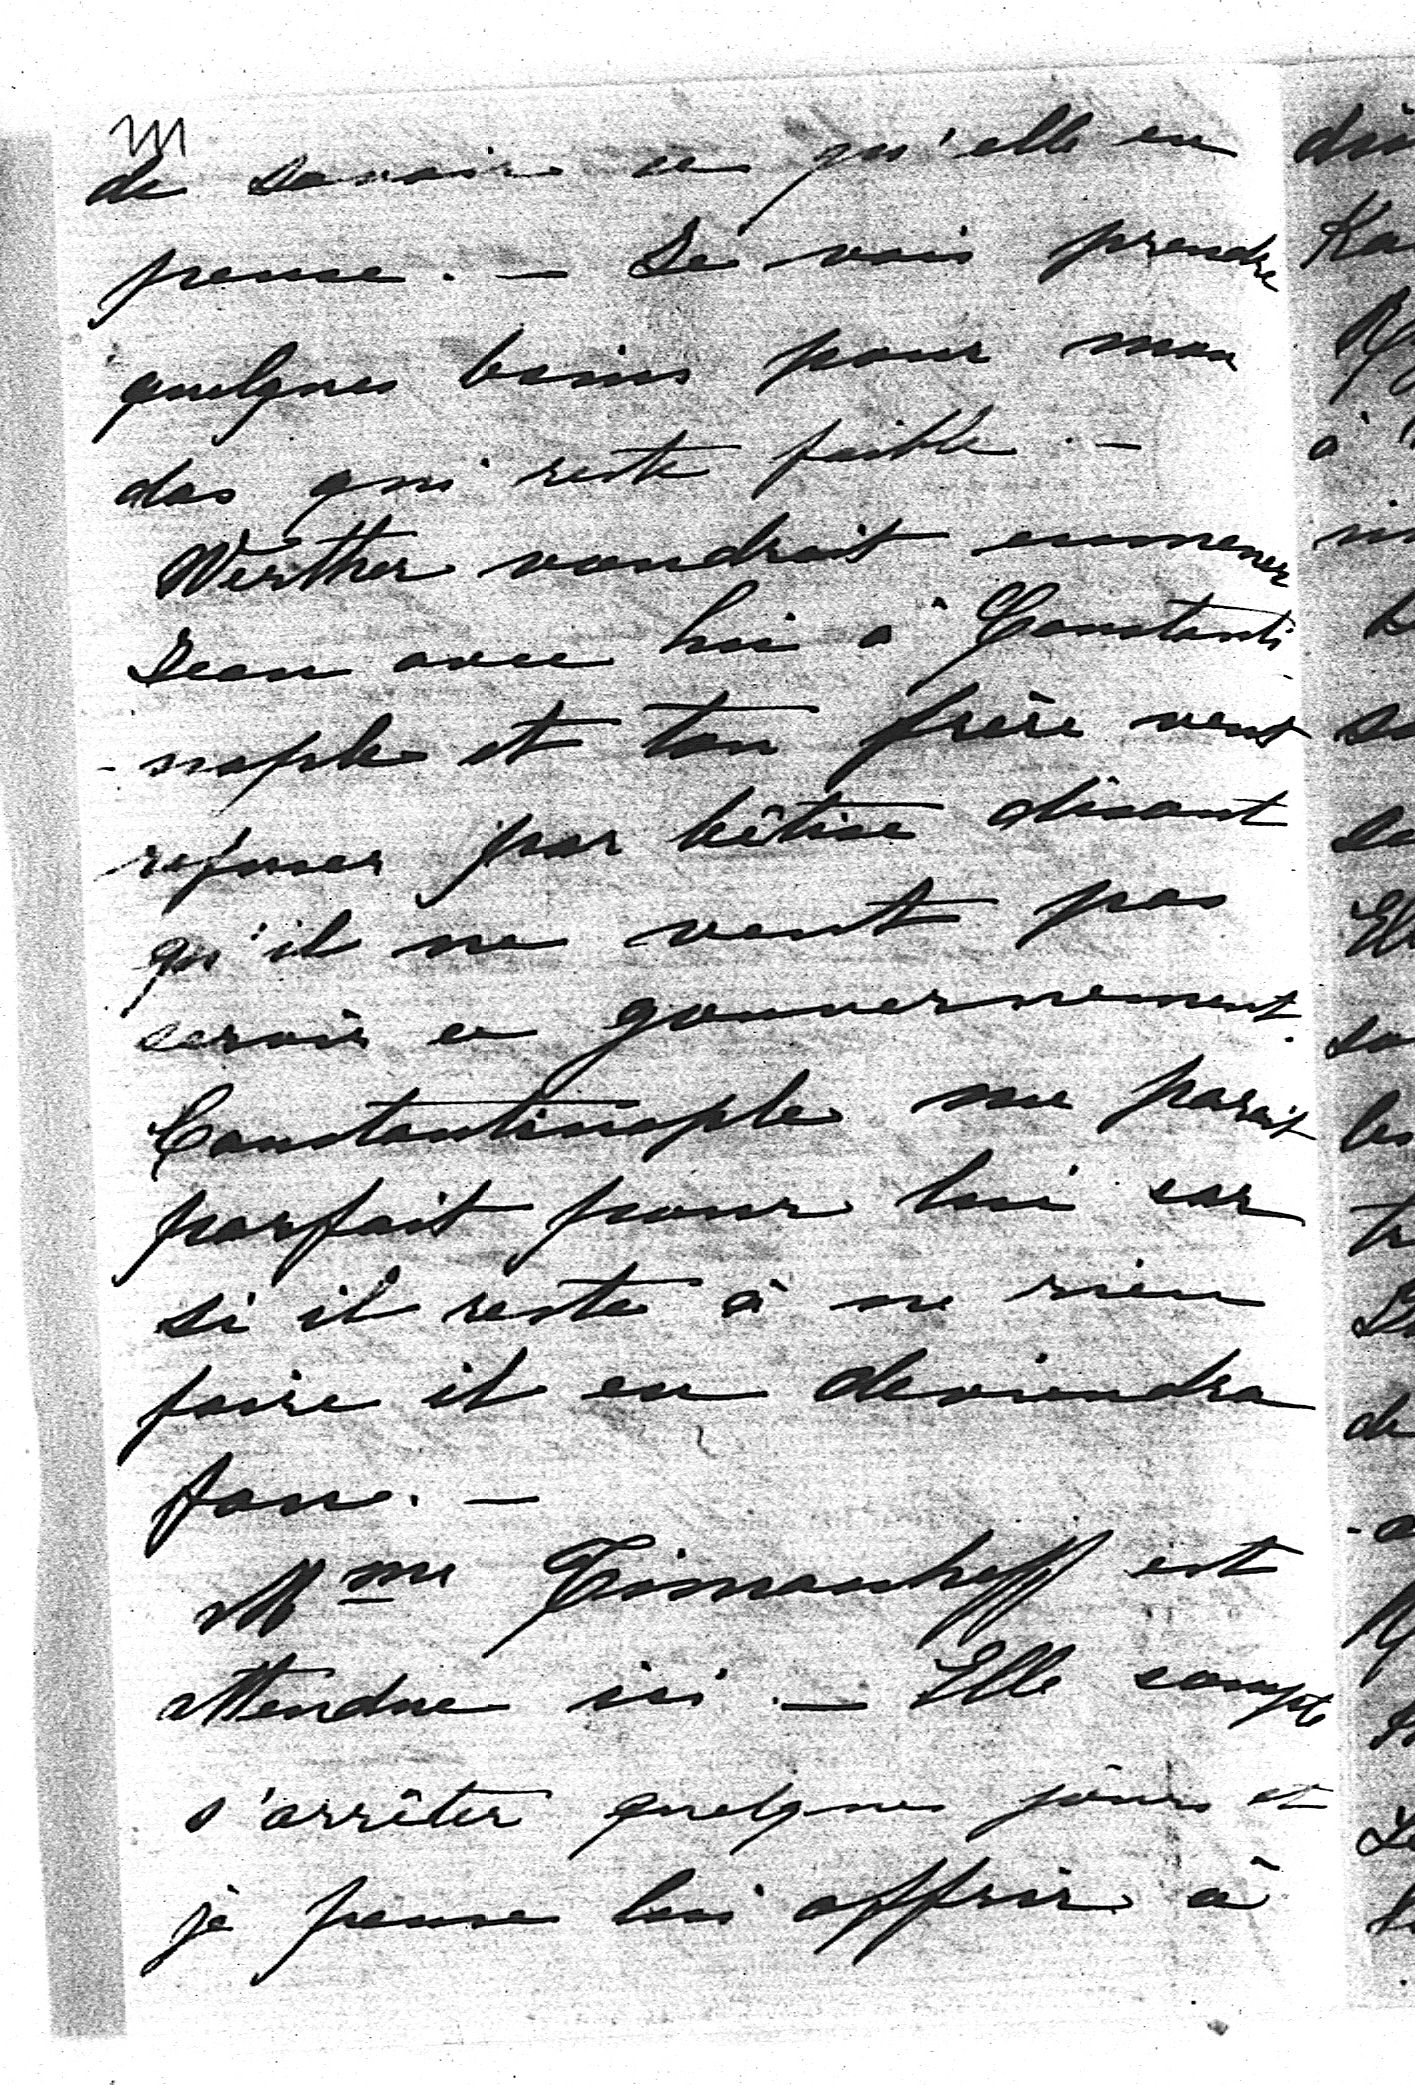 de savoir ce qu'elle en
pense. — Je vais prendre
quelques bains pour mon
dos qui reste faible. —
Werther voudrait emmener
Jean avec lui à Constanti
- nople et ton frère veut
refuser par bêtise disant
qu'il ne veut pas
servir ce gouvernement.
Constantinople me parait
parfait pour lui car
si il reste à ne rien
faire il en deviendra
fou. —
Mme est
attendue ici — Elle compte
s'arrêter quelques jours et
je pense lui offrir à